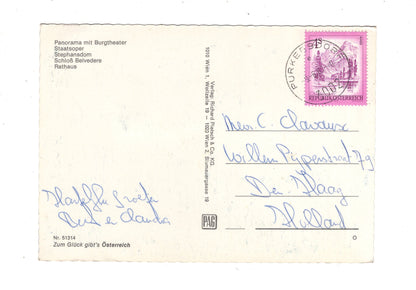 Panorama mit Burgtheater
Staatsoper
Stephansdom
Schloß Belvedere
Rathaus
Hartelijke Groeten
Claudia
Nr. 51314
Zum Glück gibt's Österreich
Verlag: Richard Pietsch & Co. KG.
1010 Wien 1, Wollzeile 19 — 1020 Wien 2, Blumauergasse 19
PAG
PURKERSDORF
3002
REPUBLIK ÖSTERREICH
Mevr. C. Clavaux
Willem Pijperstraat 79
Den Haag
Holland